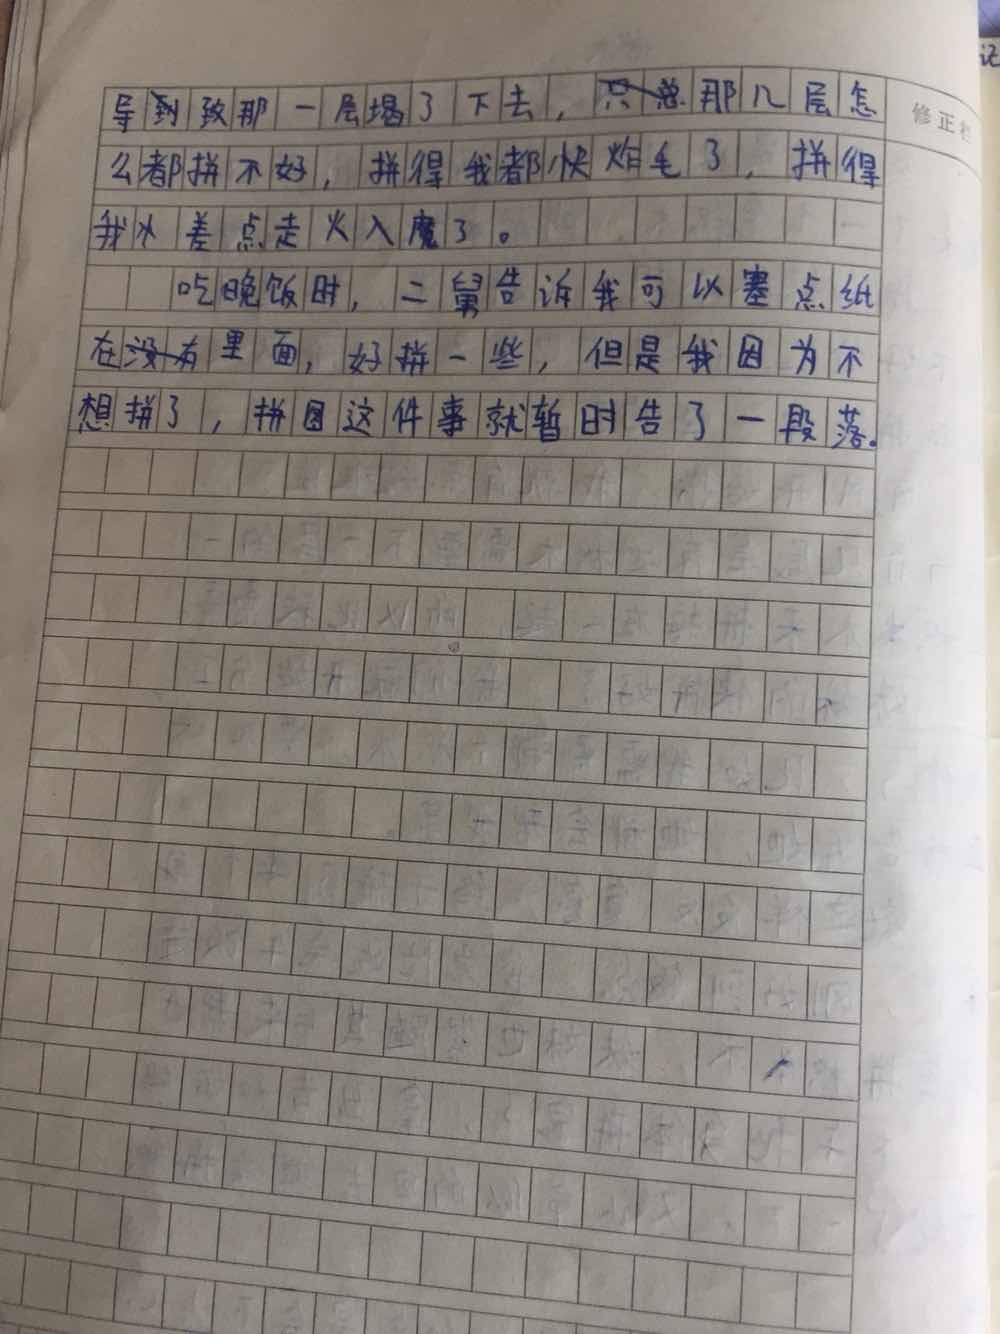 导致那一层塌了下去，那几层怎
么都拼不好，拼得我都快炸毛了，拼得
我差点走火入魔了。
吃晚饭时，二舅告诉我可以塞点纸
在里面，好拼一些，但是我因为不
想拼了，拼图这件事就暂时告了一段落。
修正栏
记